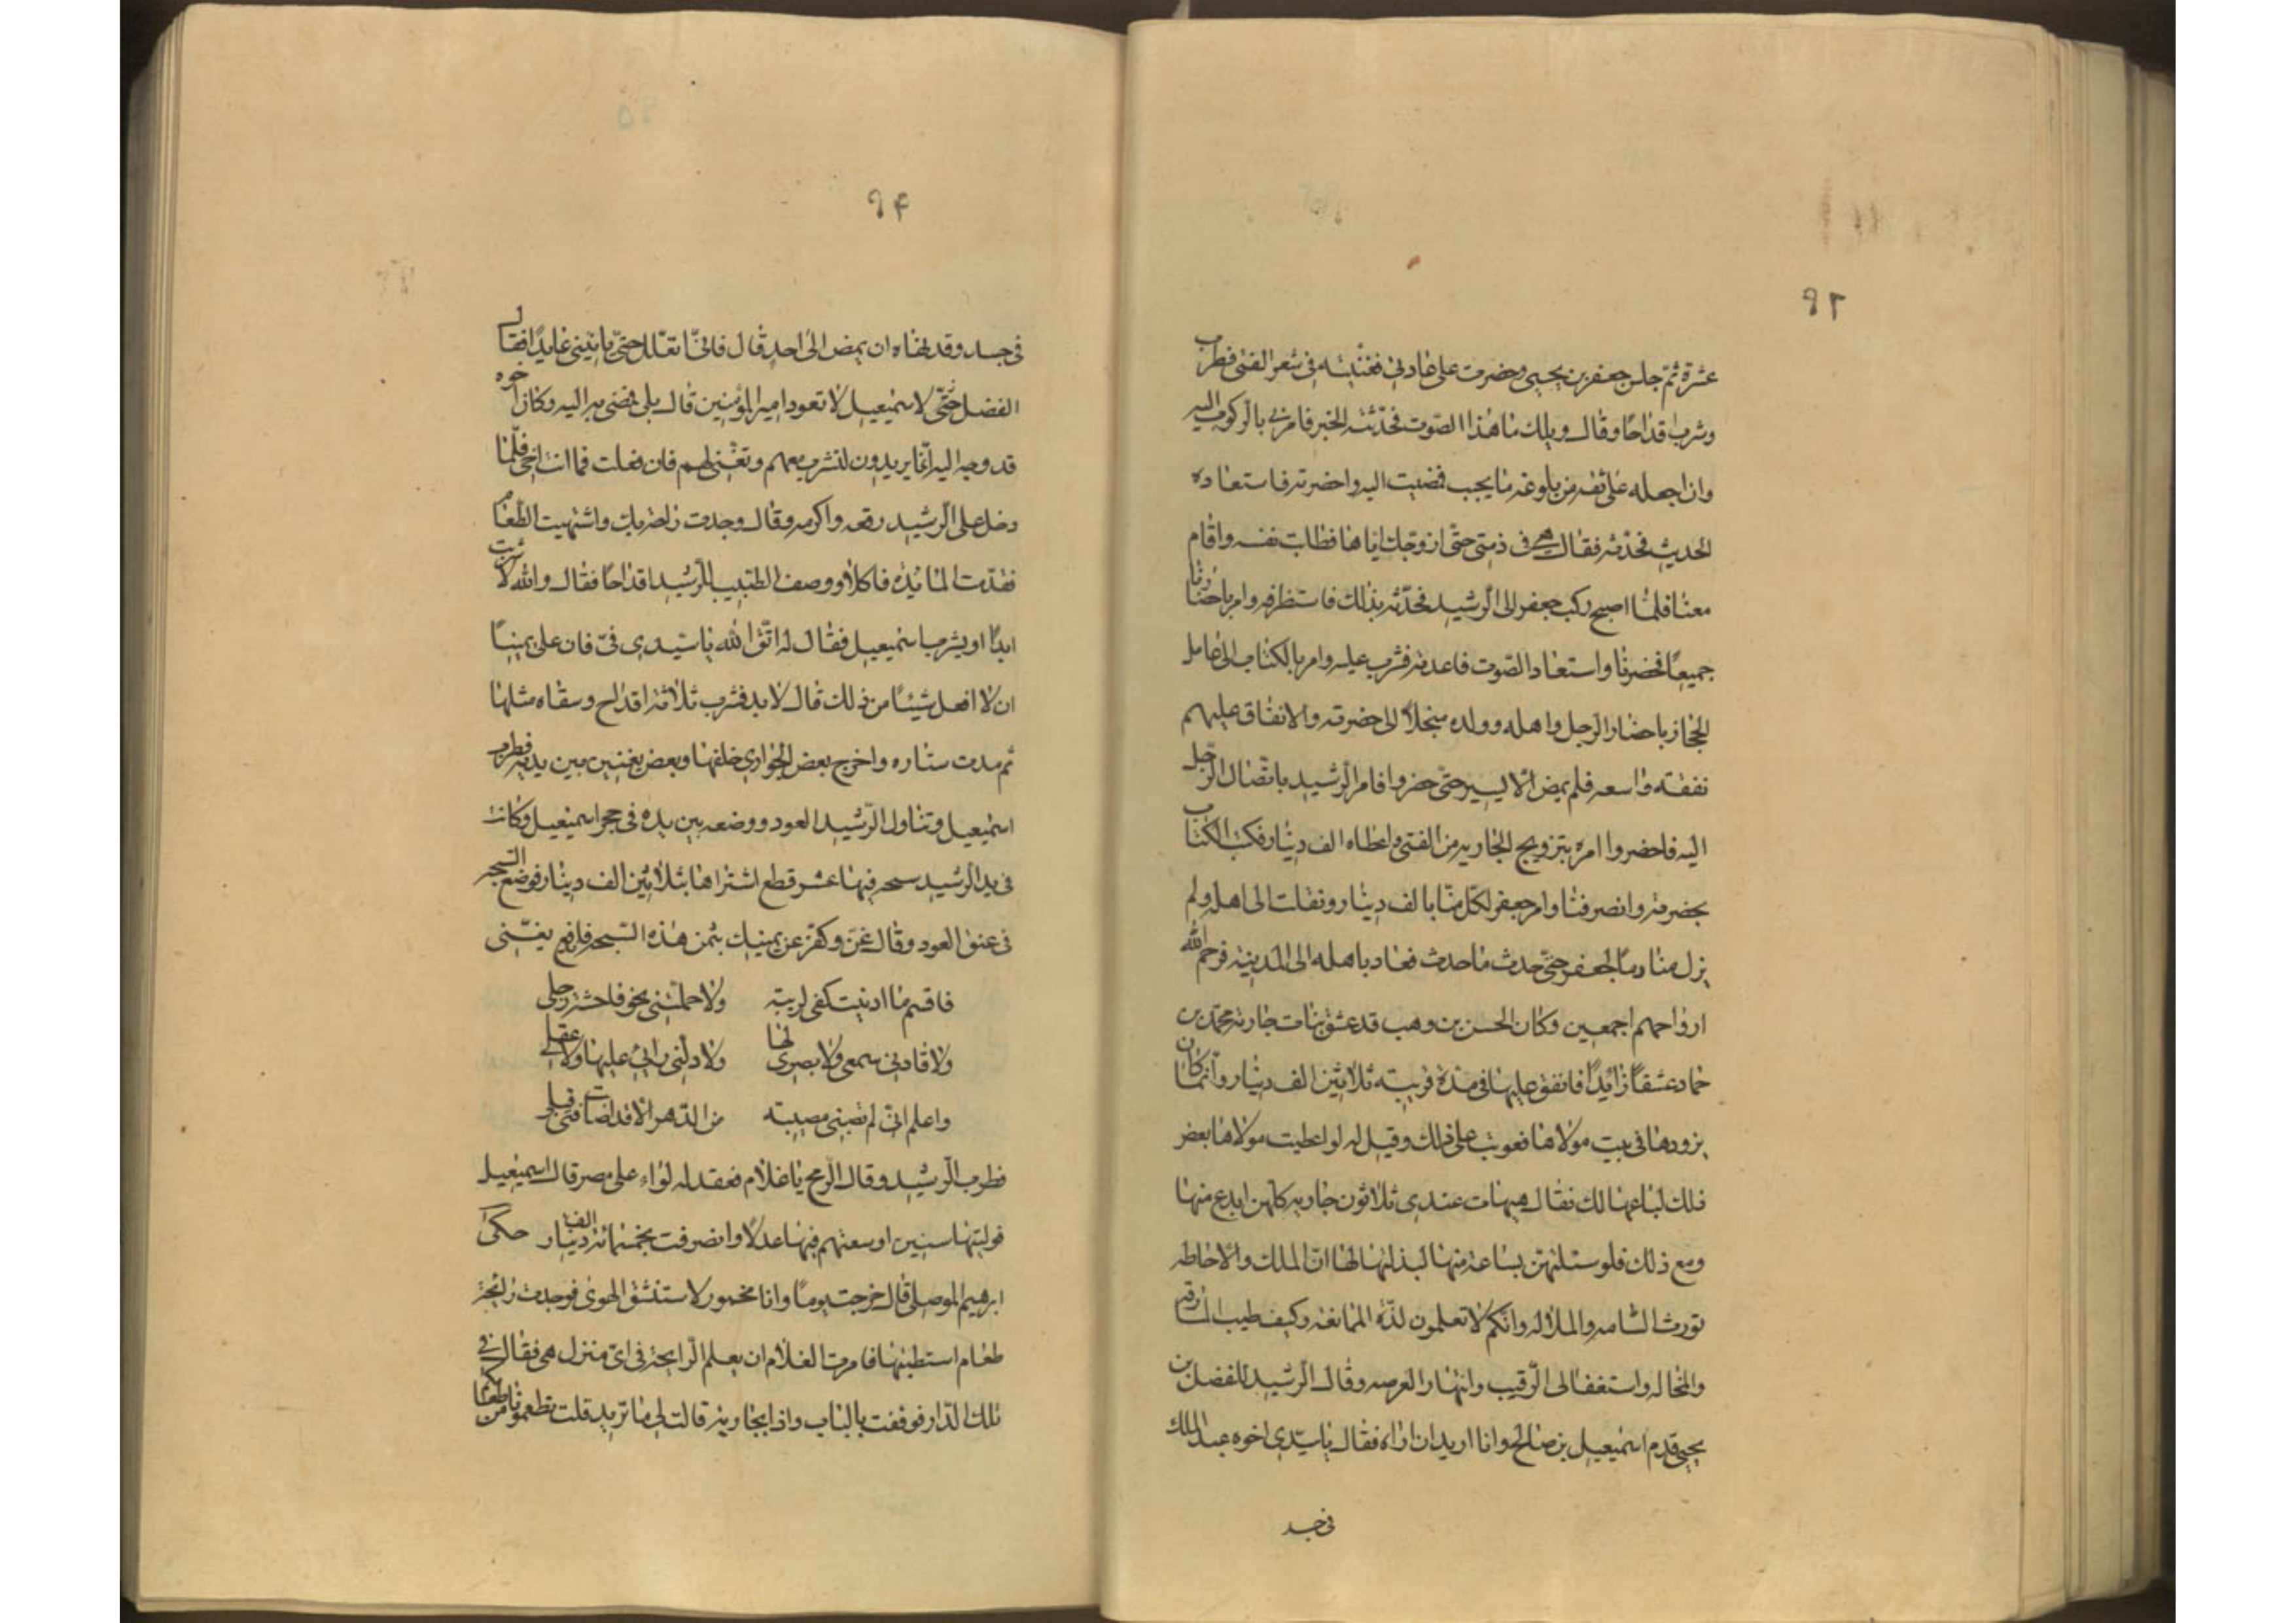 ٩٣
عشرة ثمّ جلس جعفر بن يحيى وحضرت على عادتي فغنّيته في شعر الفتى فطرب
وشرب اقداحًا وقال ويلك ما هذا الصّوت فحدّثته الخبر فامرني بالركوب اليه
وان اجعله على ثقه من بلوغه ما يجب فمضيت اليه واحضرته فاستعاده
الحديث فحدّثه فقال هي في ذمتي حتّى ازوّجك اياها فطابت نفسه واقام
معنا فلمّا اصبح ركب جعفر الى الرّشيد فحدّثه بذلك فاستظرفه وامر باحضارنا
جميعًا فحضرنا واستعاد الصّوت فاعدته فشرب عليه وامر بالكتاب الى عامل
الحجاز باحضار الرّجل واهله وولده مبجلاً الى حضرته والانفاق عليهم
نفقته واسعه فلم يمض الّا يسير حتّى حضروا فامر الرّشيد بايصال الرّجل
اليه فاحضروا امره بتزويج الجاريه من الفتى واعطاه الف دينار فكتب الكتاب
بحضرته وانصرفنا وامر جعفر لكلّ منّا بالف دينار ونقلت الى اهله ولم
يزل منادمًا لجعفر حتّى حدث ما حدث فعاد باهله الى المدينه فرحم الله
ارواحهم اجمعين وكان الحسن بن وهب قد عشق بنات جارية محمّد بن
حماد عشقًا زايدًا فانفق عليها في مدّة قريبته ثلاثين الف دينار وانّما كان
يزورها في بيت مولاها فعوتب على ذلك وقيل له لو اعطيت مولاها بعض
ذلك لباعها لك فقال هيهات عندي ثلاثون جاريه كلهن ابدع منها
ومع ذلك فلو سئلتهن بساعة منها لبذلتها لها انّ الملك والاحاطه
تورث السّامه والملاله وانّكم لا تعلمون لذّة الممانعه وكيف طيب المسارقه
والمخاله واستغفال الرّقيب وانتهار الفرصه وقال الرّشيد للفضل بن
يحيى قدم اسمعيل بن صالح وانا اريد ان اراه فقال يا سيّدي اخوه عبد الملك
في حبسـ
٩۴
في حبسه وقد نهاه ان يمض الى احد قال فانّا نتعلّل حتّى ياتيني عايدًا فقال
الفضل حتّى لاسمعيل لا تعود امير المؤمنين قال بلى فمضى به اليه وكان اخوه
قد وجه اليه انّما يريدون لتشرب معهم وتغنّي لهم فان فعلت فما انت اخي فلمّا
دخل على الرّشيد رفعه واكرمه وقال وجدت راحه بك واشتهيت الطّعام
فقدّمت المائده فاكلا ووصف الطّبيب للرّشيد اقداحًا فقال والله لا شربت
ابدًا او يشرب اسمعيل فقال له اتّق الله يا سيّدي فيّ فان عليّ يمينًا
ان لا افعل شيئًا من ذلك قال لا بد فشرب ثلاثة اقداح وسقاه مثلها
ثم مدت ستاره واخرج بعض الجواري خلفها وبعض يغنين بين يديه فطرب
اسمعيل وتناول الرّشيد العود ووضعه بين يده في حجر اسمعيل وكانت
في يد الرّشيد سبحه فيها عشر قطع اشتراها بثلاثين الف دينار فوضع السّبحه
في عنق العود وقال غنّ وكفّر عن يمينك بثمن هذه السّبحه فاندفع يغنّي
فاقسم ما ادنيت كفى لريبته ولا حملتني نحو فاحشة رجلي
ولا قادني سمعي ولا بصري لها ولا دلّني رايي عليها ولا عقلي
واعلم انّي لم تصبني مصيبته من الدّهر الّا قد اصابت فتى قبلي
فطرب الرّشيد وقال الرّمح يا غلام فعقد له لواء على مصر قال اسمعيل
فوليتها سنين اوسعتهم فيها عدلًا وانصرفت بخمسمائة الف دينار حكى
ابرهيم الموصلي قال خرجت يومًا وانا مخمور لاستنشق الهوى فوجدت رائحة
طعام استطبتها فامرت الغلام ان يعلم الرّايحة في ايّ منزل هي فقال في
تلك الدّار فوقفت بالباب واذا بجارية قالت لي ما تريد قلت تطعمونا من طعامكم